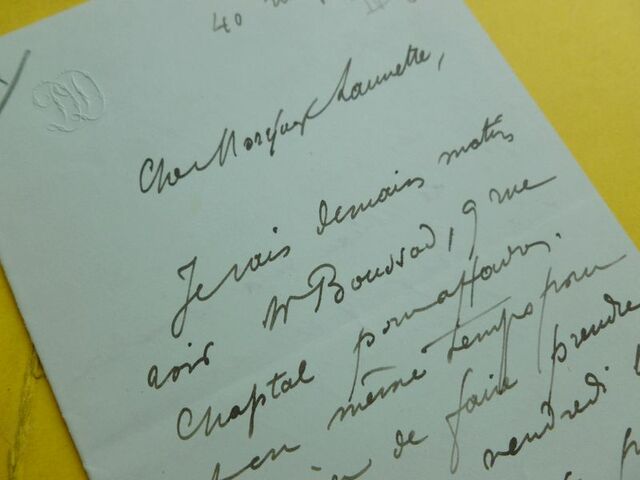 40
PD
Cher Monsieur Launette,
Je vais demain matin
voir Mr Boussod, 9 rue
Chaptal pour affaires.
en même temps pour
de faire prendre
vendredi